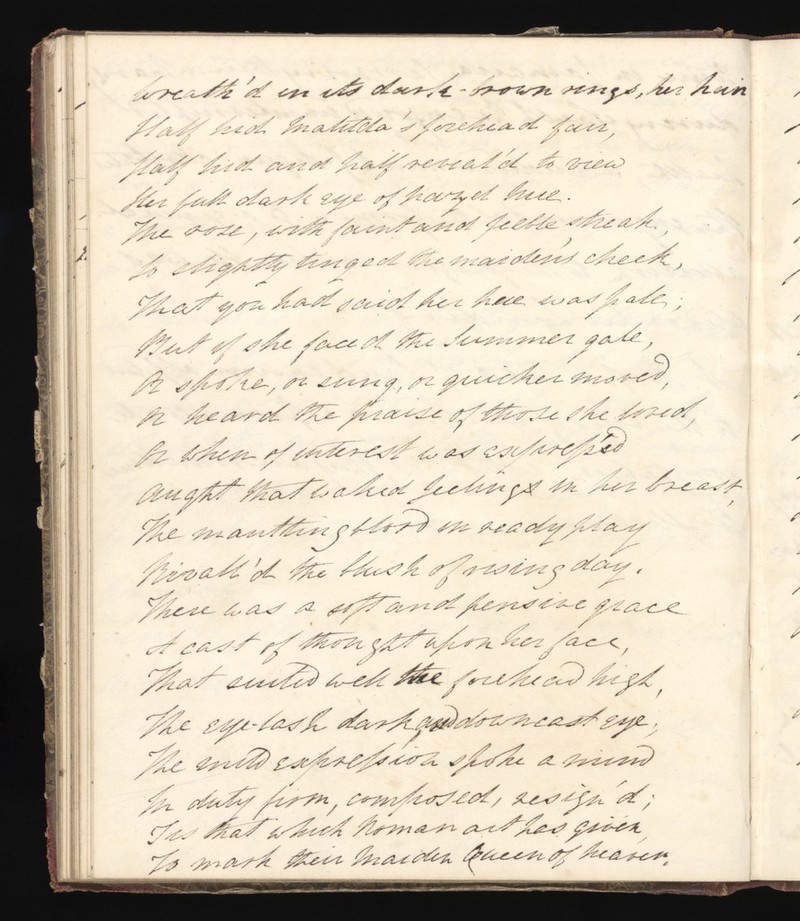 Wreath'd in its dark-brown rings, her hair
Half hid Matilda's forehead fair,
Half hid and half reveal'd to view
Her full dark eye of hazel hue.
The rose, with faint and feeble streak,
So slightly tinged the maiden's cheek,
That you had said her hue was pale;
But if she faced the Summer gale,
Or spoke, or sung, or quicker moved,
Or heard the praise of those she loved,
Or when of interest was express'd
Aught that waked feelings in her breast,
The mantling blood in ready play
Rivall'd the blush of rising day.
There was a soft and pensive grace
A cast of thought upon her face,
That suited well the forehead high,
The eye-lash dark and downcast eye;
The mild expression spoke a mind
In duty firm, composed, resign'd;
Tis that which Roman art has given,
To mark their Maiden Queen of heaven.